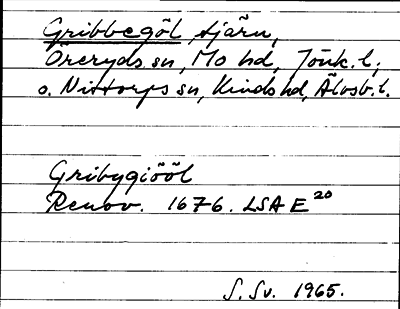 Gribbegöl, tjärn,
Öreryds sn, Mo hd, Jönk. l.;
o. Nittorps sn, Kinds hd, Älvsb. l.
Gribygiööl
Renov. 1676. LSA E 20
S. Sv. 1965.